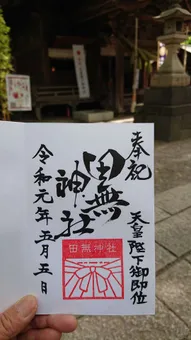 奉祝
天皇陛下御即位
田無神社
田無神社
令和元年五月五日